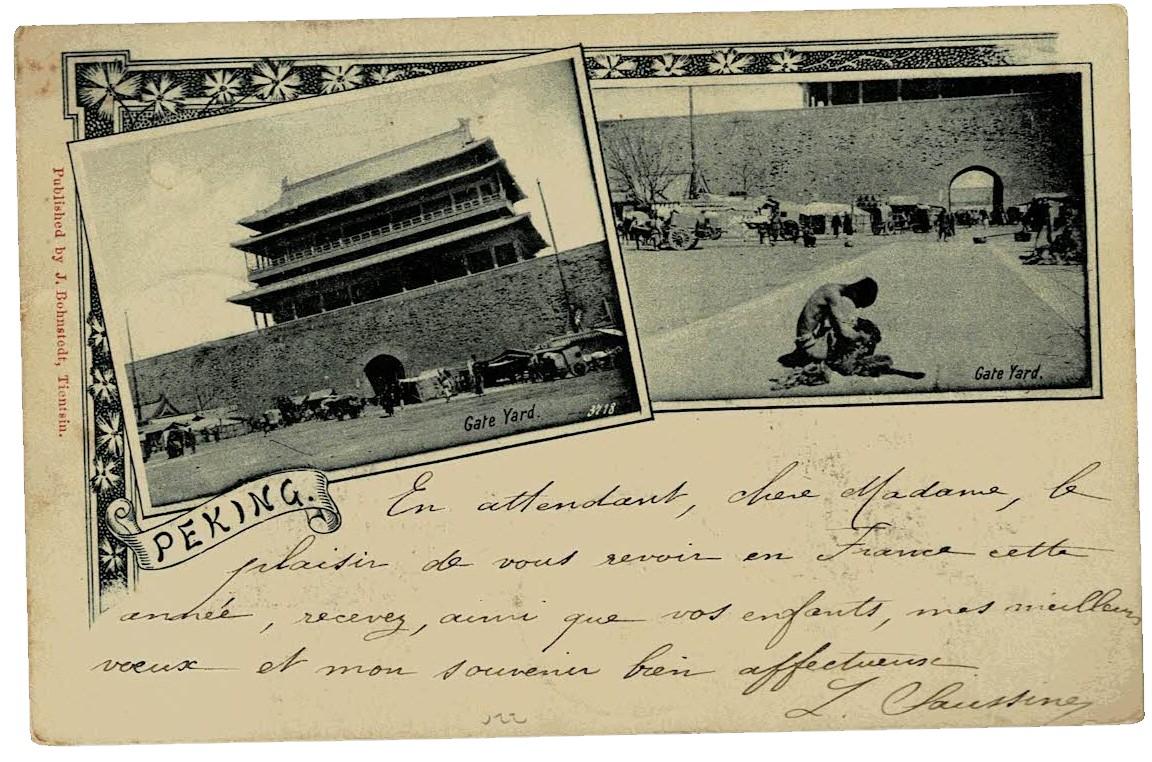 Published by J. Bohnstedt, Tientsin.
Gate Yard.
3218
Gate Yard.
PEKING.
En attendant, chere Madame, le
plaisir de vous revoir en France cette
année, recevez, ainsi que vos enfants, mes meilleurs
voeux et mon souvenir bien affectueux
L. Saussine